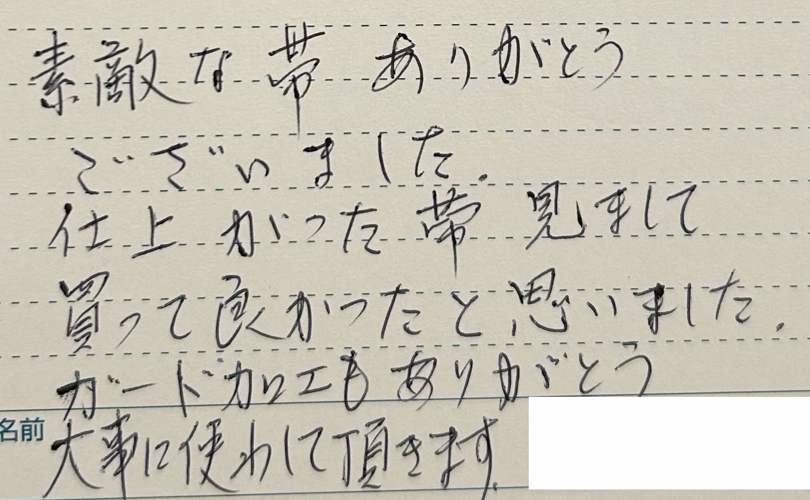 素敵な帯 ありがとう
ございました.
仕上がった帯 見まして
買って良かったと思いました.
ガード加工もありがとう
名前
大事に使わして頂きます.